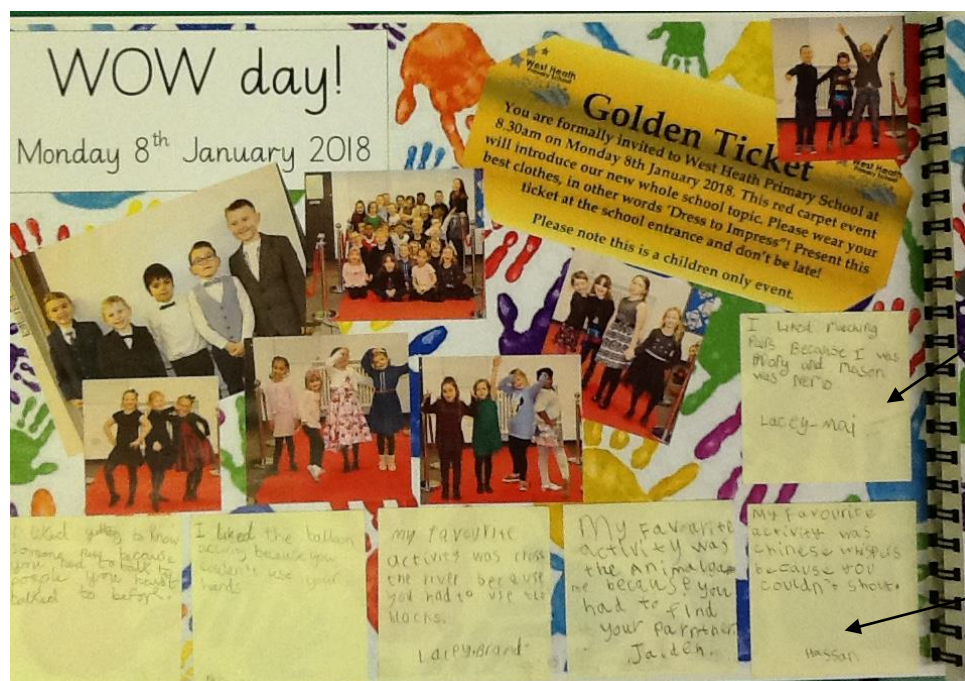 WOW day!
Monday 8th January 2018
West Heath
Primary School
Golden Ticket
You are formally invited to West Heath Primary School at
8.30am on Monday 8th January 2018. This red carpet event
will introduce our new whole school topic. Please wear your
best clothes, in other words 'Dress to Impress"! Present this
ticket at the school entrance and don't be late!
Please note this is a children only event.
West Heath
Primary School
I liked Matching
Because I was
and Mason
was Nemo
Lacey-Mai
I liked getting to know
because
you had to talk to
people you
talked to before.
I liked the balloon
because you
couldn't use your
hands
my favourite
activity was cross
the river because
you had to use the
blocks.
Lacey.Brand
My Favourite
activity was
the Animalga
me because you
had to find
your
Jaiden.
My Favourite
activity was
Chinese whispers
because you
couldn't shout.
Hassan